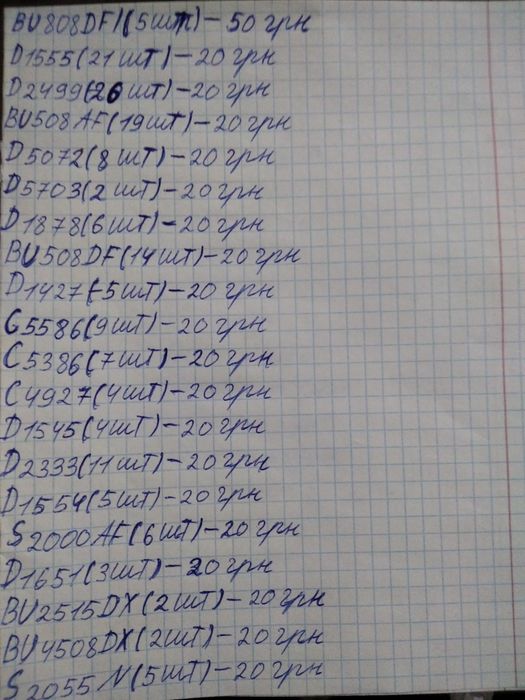 BU808DFI(5шт)-50грн
D1555(21шт)-20грн
D2499(26шт)-20грн
BU508AF(19шт)-20грн
D5072(8шт)-20грн
D5703(2шт)-20грн
D1878(6шт)-20грн
BU508DF(14шт)-20грн
D1427(5шт)-20грн
C5586(9шт)-20грн
C5386(7шт)-20грн
C4927(4шт)-20грн
D1545(4шт)-20грн
D2333(11шт)-20грн
D1554(5шт)-20грн
S2000AF(6шт)-20грн
D1651(3шт)-20грн
BU2515DX(2шт)-20грн
BU4508DX(2шт)-20грн
S2055N(5шт)-20грн